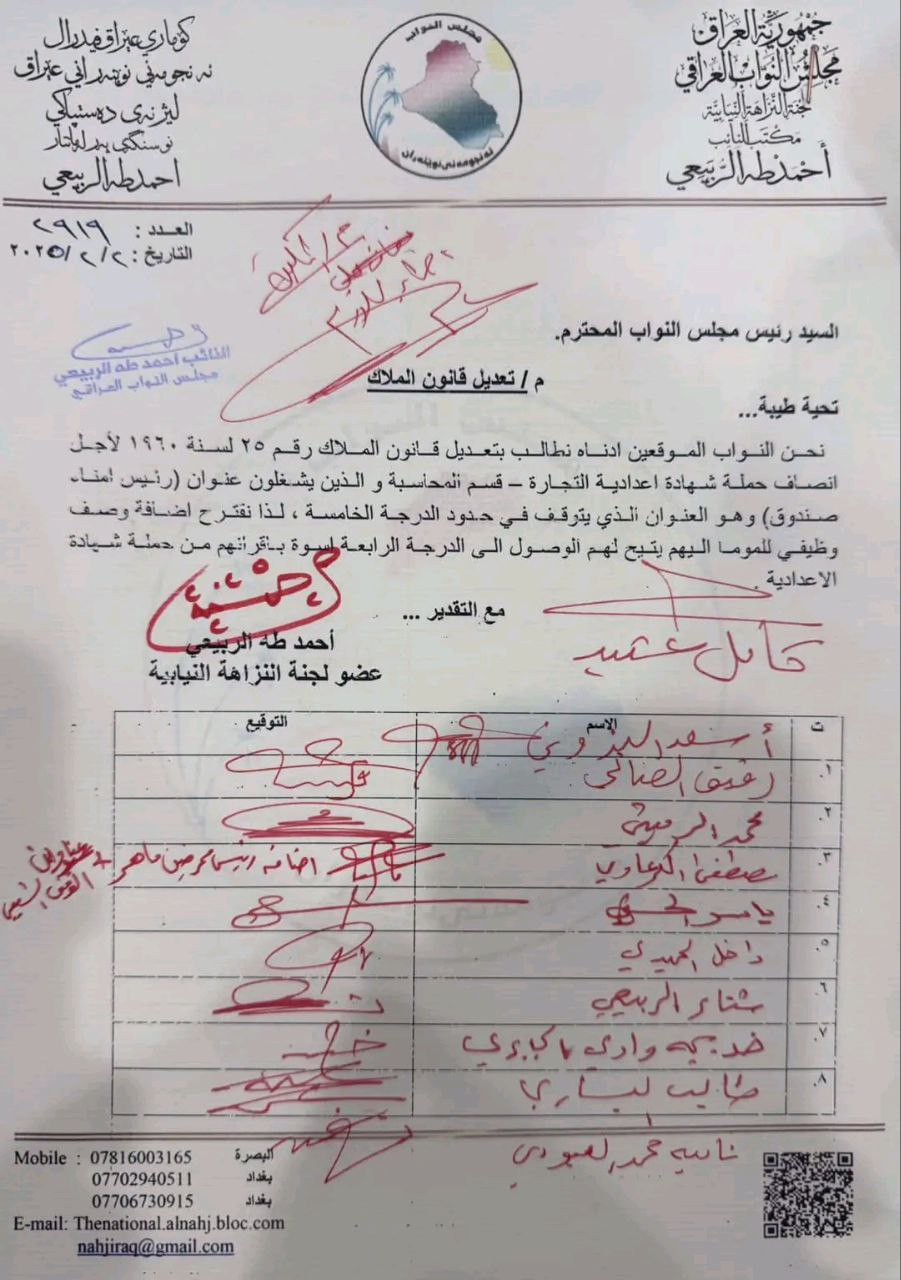 جمهورية العراق
مجلس النواب العراقي
لجنة النزاهة النيابية
مكتب النائب
أحمد طه الربيعي
مجلس النواب
ئه نجومه نى نوێنه ران
كۆماری عێراق فیدرال
ئه نجومه نی نوێنه رانی عێراق
لیژنه ی ده ستپاكی
نوسنگه ی په رله مانتار
احمد طه الربيعي
العدد : ٢٩١٩
التاريخ : ٢/ ٢/ ٢٠٢٥
النائب احمد طه الربيعي
مجلس النواب العراقي
السيد رئيس مجلس النواب المحترم.
م / تعديل قانون الملاك
تحية طيبة...
نحن النواب الموقعين ادناه نطالب بتعديل قانون الملاك رقم ٢٥ لسنة ١٩٦٠ لأجل
انصاف حملة شهادة اعدادية التجارة – قسم المحاسبة و الذين يشغلون عنوان (رئيس امناء
صندوق) وهو العنوان الذي يتوقف في حدود الدرجة الخامسة ، لذا نقترح اضافة وصف
وظيفي للموما اليهم يتيح لهم الوصول الى الدرجة الرابعة اسوة باقرانهم من حملة شهادة
الاعدادية .
مع التقدير ...
أحمد طه الربيعي
عضو لجنة النزاهة النيابية
كامل عنيد
ت الاسم التوقيع
أسعد البزوني
١. رفيق الصالحي
٢. محمد
٣. مصطفى الكرعاوي اضافة رئيس ممرضين ماهر
٤. ياسر
٥. داخل
٦. الربيعي
٧. خديجة وادي
٨. طالب
نادية محمد العبودي
Mobile : 07816003165 البصرة
07702940511 بغداد
07706730915 بغداد
E-mail: Thenational.alnahj.bloc.com
nahjiraq@gmail.com